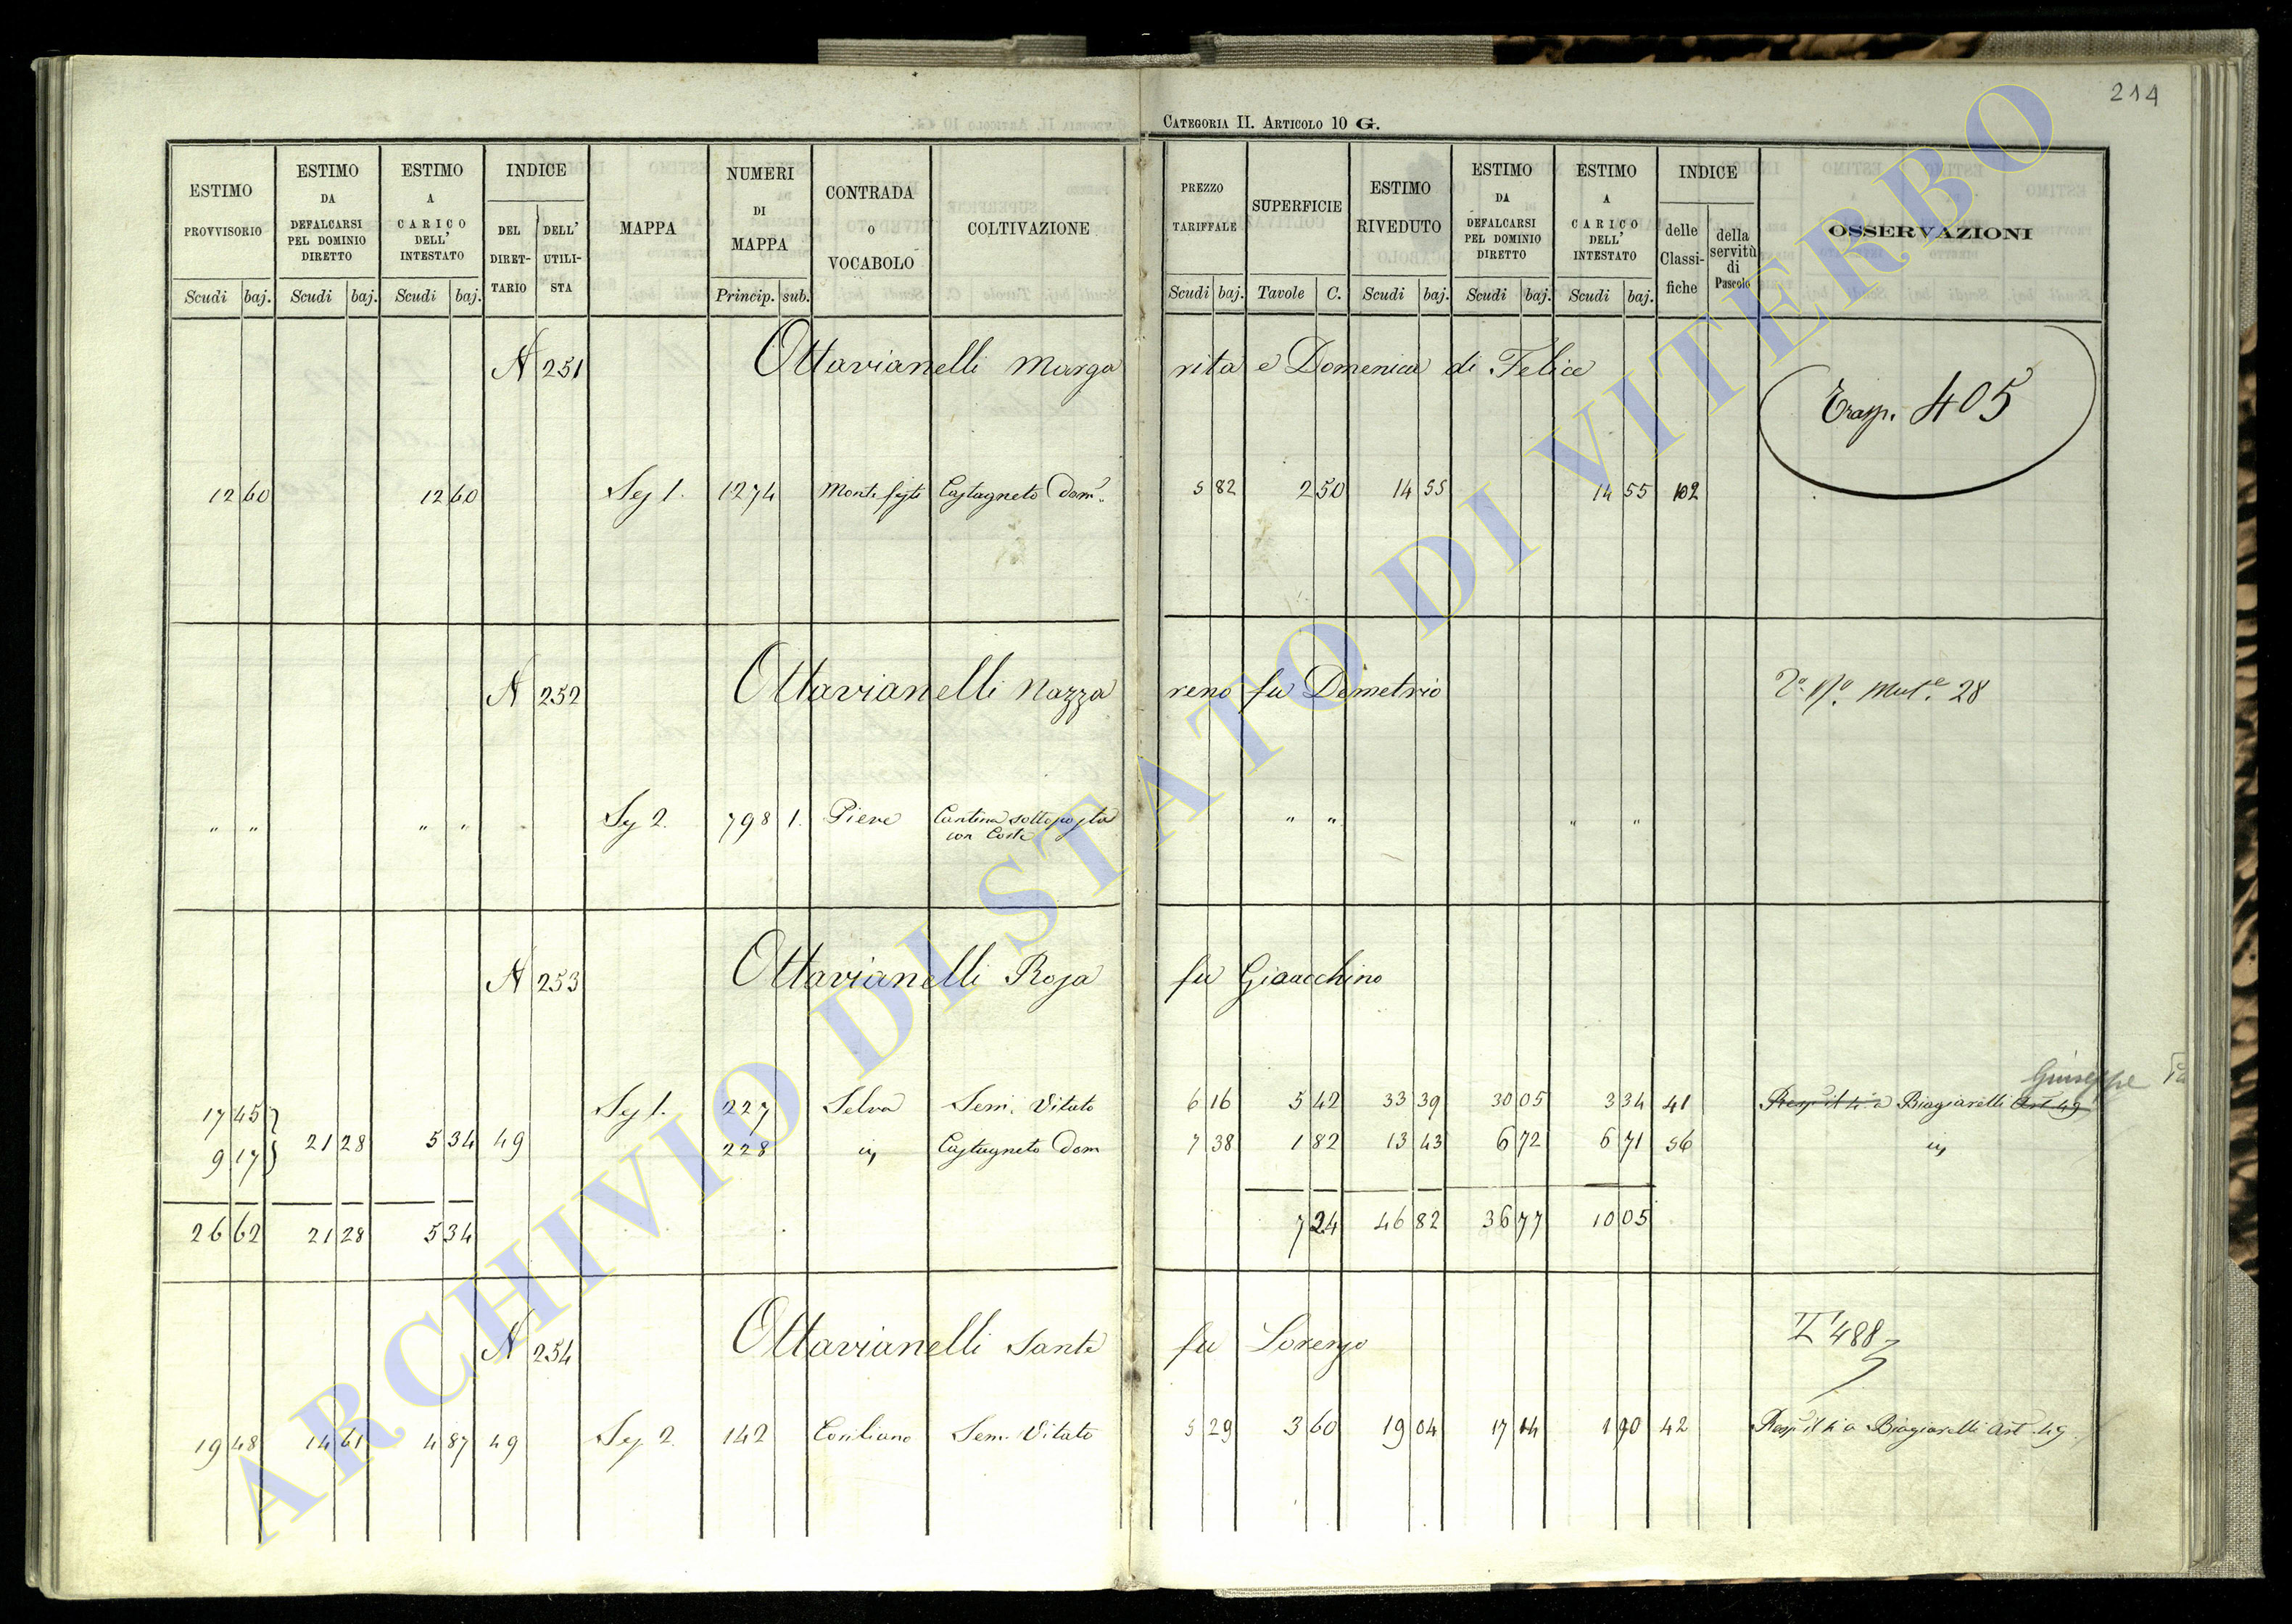 214
CATEGORIA II. ARTICOLO 10 G.
ESTIMO PROVVISORIO | ESTIMO DA DEFALCARSI PEL DOMINIO DIRETTO | ESTIMO A CARICO DELL' INTESTATO | INDICE DEL DIRETTARIO | DELL' UTILISTA | MAPPA | NUMERI DI MAPPA | CONTRADA O VOCABOLO | COLTIVAZIONE | PREZZO TARIFFALE | SUPERFICIE | ESTIMO RIVEDUTO | ESTIMO DA DEFALCARSI PEL DOMINIO DIRETTO | ESTIMO A CARICO DELL' INTESTATO | INDICE delle Classifiche | della servitù di Pascolo | OSSERVAZIONI
Scudi | baj. | Scudi | baj. | Scudi | baj. | Princip. | sub. | Scudi | baj. | Tavole | C. | Scudi | baj. | Scudi | baj. | Scudi | baj.
N 251 Ottavianelli Margarita e Domenica di Felice
Trasp. 405
12 60 | 12 60 | Sez 1. | 1274 | Castagneto Dom. | 5 82 | 2 50 | 14 55 | 14 55 | 102
N 252 Ottavianelli Nazzareno fu Demetrio
Mut.e 28
" " | " " | Sez 2. | 798 | 1. | Pieve | Cantina sottoposta con Corte | " " | " "
N 253 Ottavianelli Rosa fu Gioacchino
Giuseppe
17 45 | Sez 1. | 227 | Selva | Sem. Vitato | 6 16 | 5 42 | 33 39 | 30 05 | 3 34 | 41 | Biagiarelli Art 49
9 17 | 21 28 | 5 34 | 49 | 228 | in | Castagneto Dom | 7 38 | 1 82 | 13 43 | 6 72 | 6 71 | 56 | in
26 62 | 21 28 | 5 34 | 7 24 | 46 82 | 36 77 | 10 05
N 254 Ottavianelli Sante fu Lorenzo
488
19 48 | 14 61 | 4 87 | 49 | Sez 2. | 142 | Sem. Vitato | 5 29 | 3 60 | 19 04 | 17 14 | 1 90 | 42 | a Biagiarelli Art. 49
ARCHIVIO DI STATO DI VITERBO